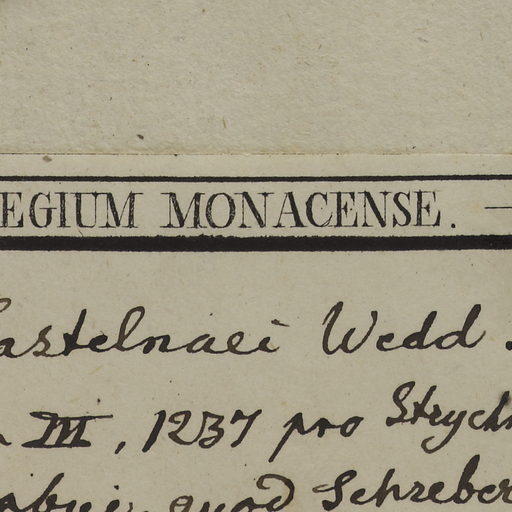 EGIUM MONACENSE. —
astelnaei Wedd.
III, 1237 pro Strychn
quod Schreber